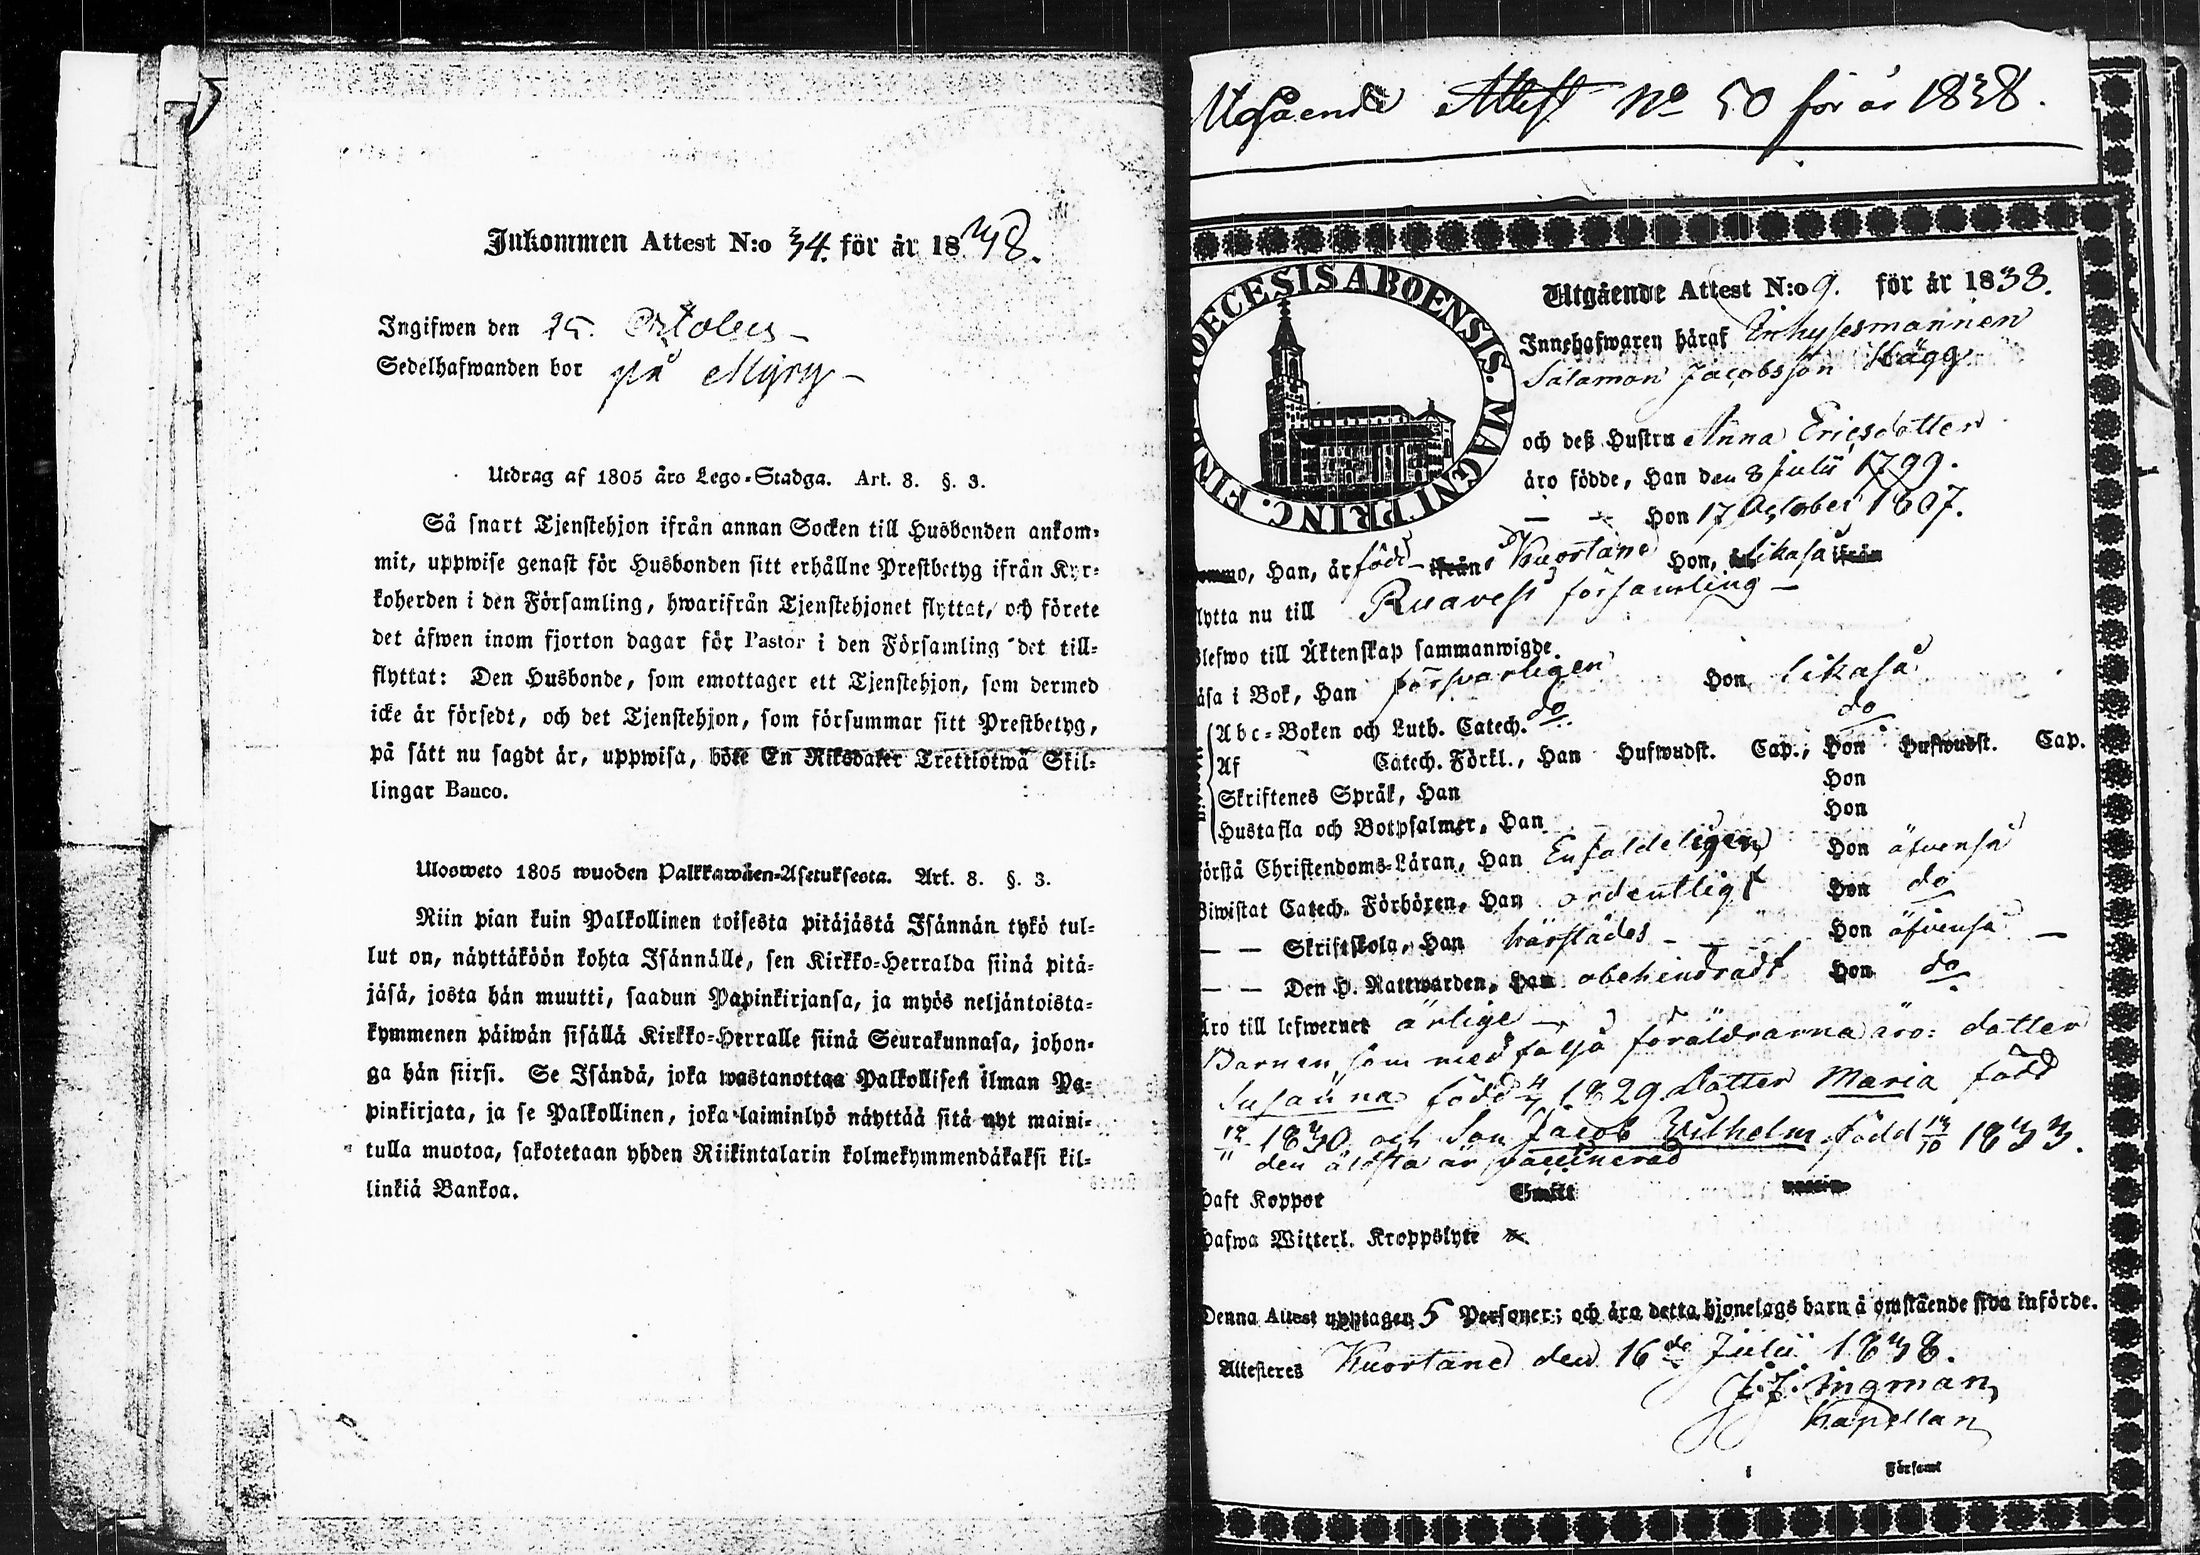 Inkommen Attest N:o 34. för år 1838.
Ingifwen den 25. October
Sedelhafwanden bor på Myry
Utdrag af 1805 års Lego-Stadga. Art. 8. §. 3.
Så snart Tjenstehjon ifrån annan Socken till Husbonden ankom-
mit, uppwise genast för Husbonden sitt erhållne Prestbetyg ifrån Kyr-
koherden i den Församling, hwarifrån Tjenstehjonet flyttat, och förete
det äfwen inom fjorton dagar för Pastor i den Församling det till-
flyttat: Den Husbonde, som emottager ett Tjenstehjon, som dermed
icke är försedt, och det Tjenstehjon, som försummar sitt Prestbetyg,
på sätt nu sagdt är, uppwisa, böte En Riksdaler Trettiotwå Skil-
lingar Banco.
Ulosweto 1805 wuoden Palkkawäen-Asetuksesta. Art. 8. §. 3.
Niin pian kuin Palkollinen toisesta pitäjästä Isännän tykö tul-
lut on, näyttäköön kohta Isännälle, sen Kirkko-Herralda siinä pitä-
jäsä, josta hän muutti, saadun Papinkirjansa, ja myös neljäntoista-
kymmenen päiwän sisällä Kirkko-Herralle siinä Seurakunnasa, johon-
ga hän siirsi. Se Isändä, joka wastanottaa Palkollisen ilman Pa-
pinkirjata, ja se Palkollinen, joka laiminlyö näyttää sitä nyt maini-
tulla muotoa, sakotetaan yhden Riikintalarin kolmekymmendäkaksi kil-
linkiä Bankoa.
Utgående Attest No 50 för år 1838.
OECESIS ABOENSIS. MAGNI PRINC. FIN
Utgående Attest N:o 9. för år 1838.
Innehafwaren häraf Inhysesmannen
Salamon Jacobsson Hägg
och deß Hustru Anna Ericsdotter
äro födde, Han den 8 Julii 1799.
— — Hon 17 October 1807.
o, Han, är född i Kuortane Hon, likaså ifrån
lytta nu till Ruovesi församling —
lefwo till Äktenskap sammanwigde.
äsa i Bok, Han försvarligen Hon likaså
Abc-Boken och Luth. Catech. do do
Af Catech. Förkl., Han Hufwudst. Cap., Hon Hufwudst. Cap.
Skriftenes Språk, Han Hon
Hustafla och Botpsalmer, Han Hon
örstå Christendoms-Läran, Han Enfaldeligen Hon äfvenså
Biwistat Catech. Förhören, Han ordentligt Hon do
— — Skriftskola, Han härstädes — — Hon äfvenså —
— — Den H. Nattwarden, Han obehindradt Hon do
Äro till lefwernet ärlige —
Barnen, som medfölja föräldrarna äro: dotter
Susanna född 4/7 1829. dotter Maria född
12/11 1830 och Son Jacob Vilhelm född 13/10 1833.
den äldsta är vaccinerad
haft Koppor
hafwa Witterl. Kroppslyte
Denna Attest upptager 5 Personer; och äro detta hjonelags barn å omstående sida införde.
Attesteres Kuortane den 16de Julii 1838.
J. J. Ingman,
Kapellan
i Församl